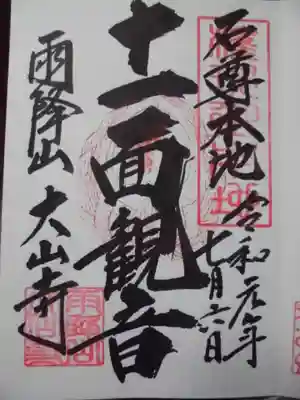 石尊本地
令和元年
七月六日
十一面観音
雨降山 大山寺